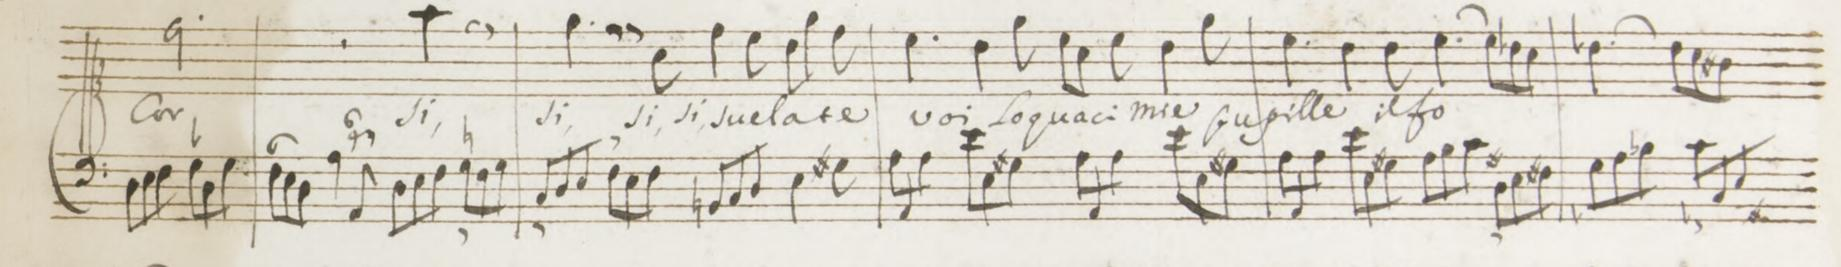 Cor, si, si, si, si, suelate voi loquaci mie pupille il fo